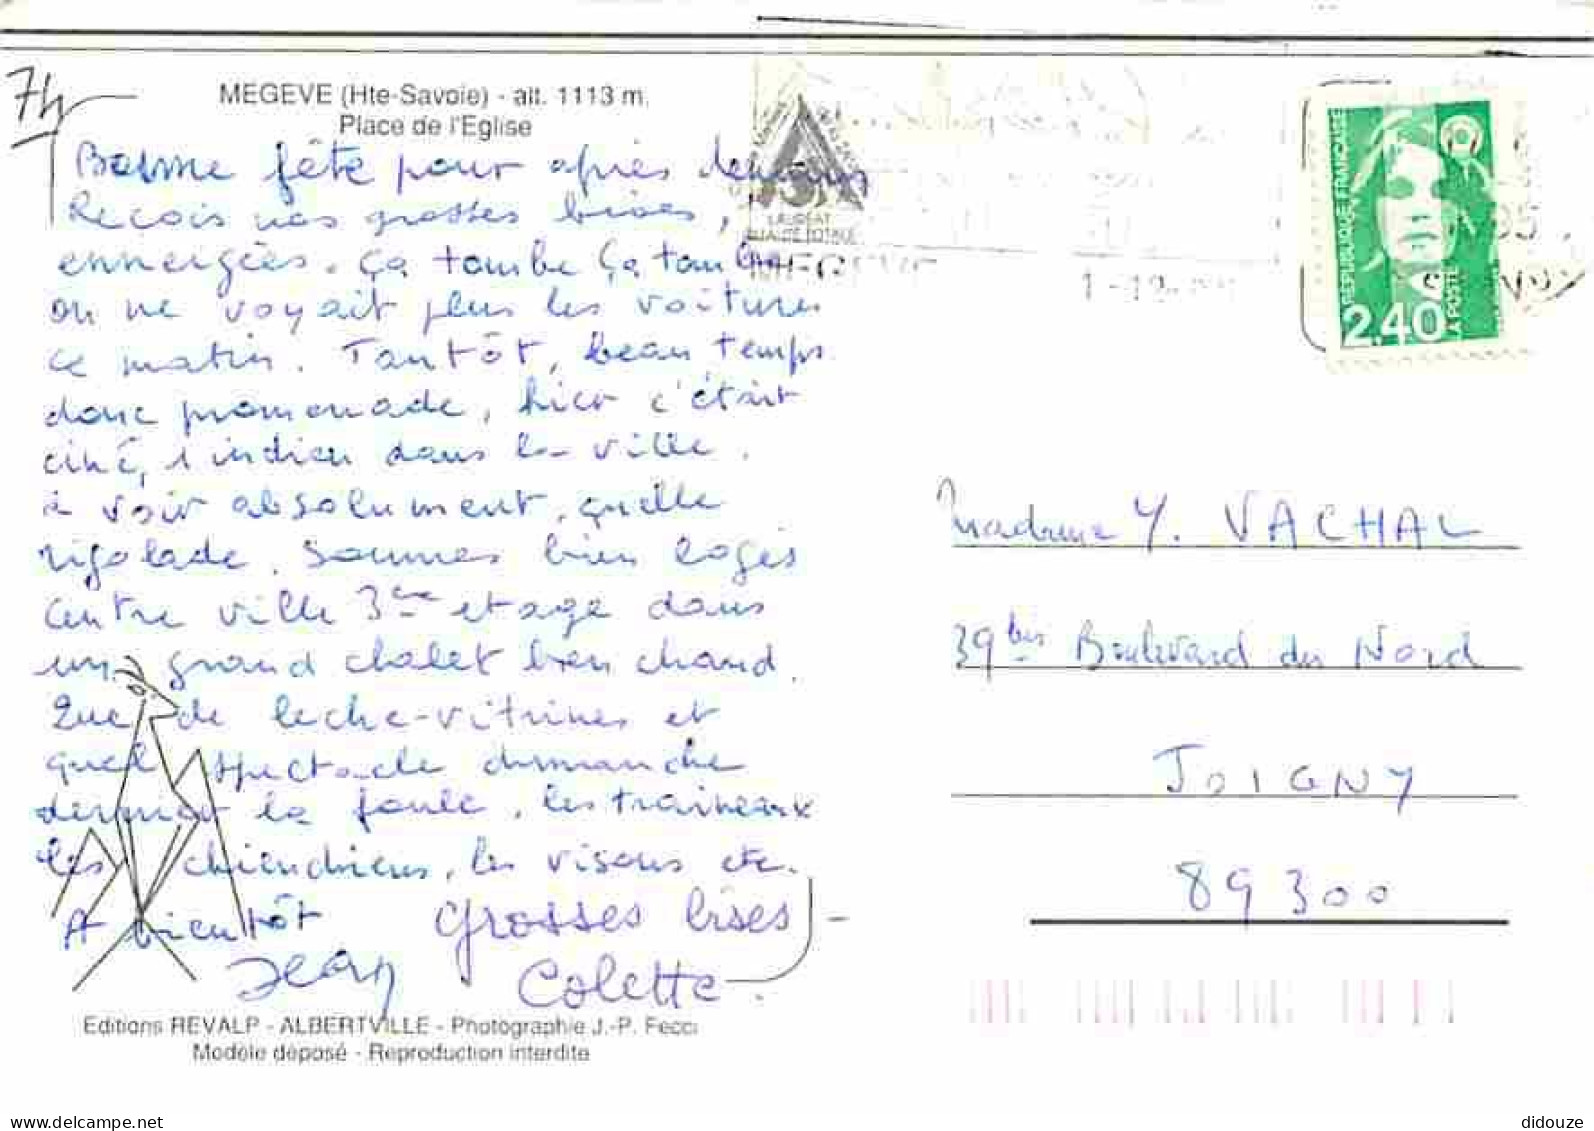 74
MEGEVE (Hte-Savoie) - alt. 1113 m.
Place de l'Eglise
Bonne fête pour après demain
Recois nos grosses bises,
enneigées. Ça tombe ça tombe
on ne voyait plus les voitures
ce matin. Tantôt, beau temps
donc promenade, hier c'était
ciné, 1 indien dans la ville.
à voir absolument, quelle
rigolade. Sommes bien logés
centre ville 3ème etage dans
un grand chalet bien chaud.
Que de leche-vitrines et
quel spectacle dimanche
dernier la foule, les traineaux
les chienchiens, les visons etc.
A bientôt grosses bises
Jean Colette.
Editions REVALP - ALBERTVILLE - Photographie J.-P. Fecci
Modèle déposé - Reproduction interdite
LAUREAT
QUALITE TOTALE
MEGEVE
REPUBLIQUE FRANÇAISE
LA POSTE
2,40
Madame Y. VACHAL
39 bis Boulevard du Nord
JOIGNY
89300
delcampe.net
didouze